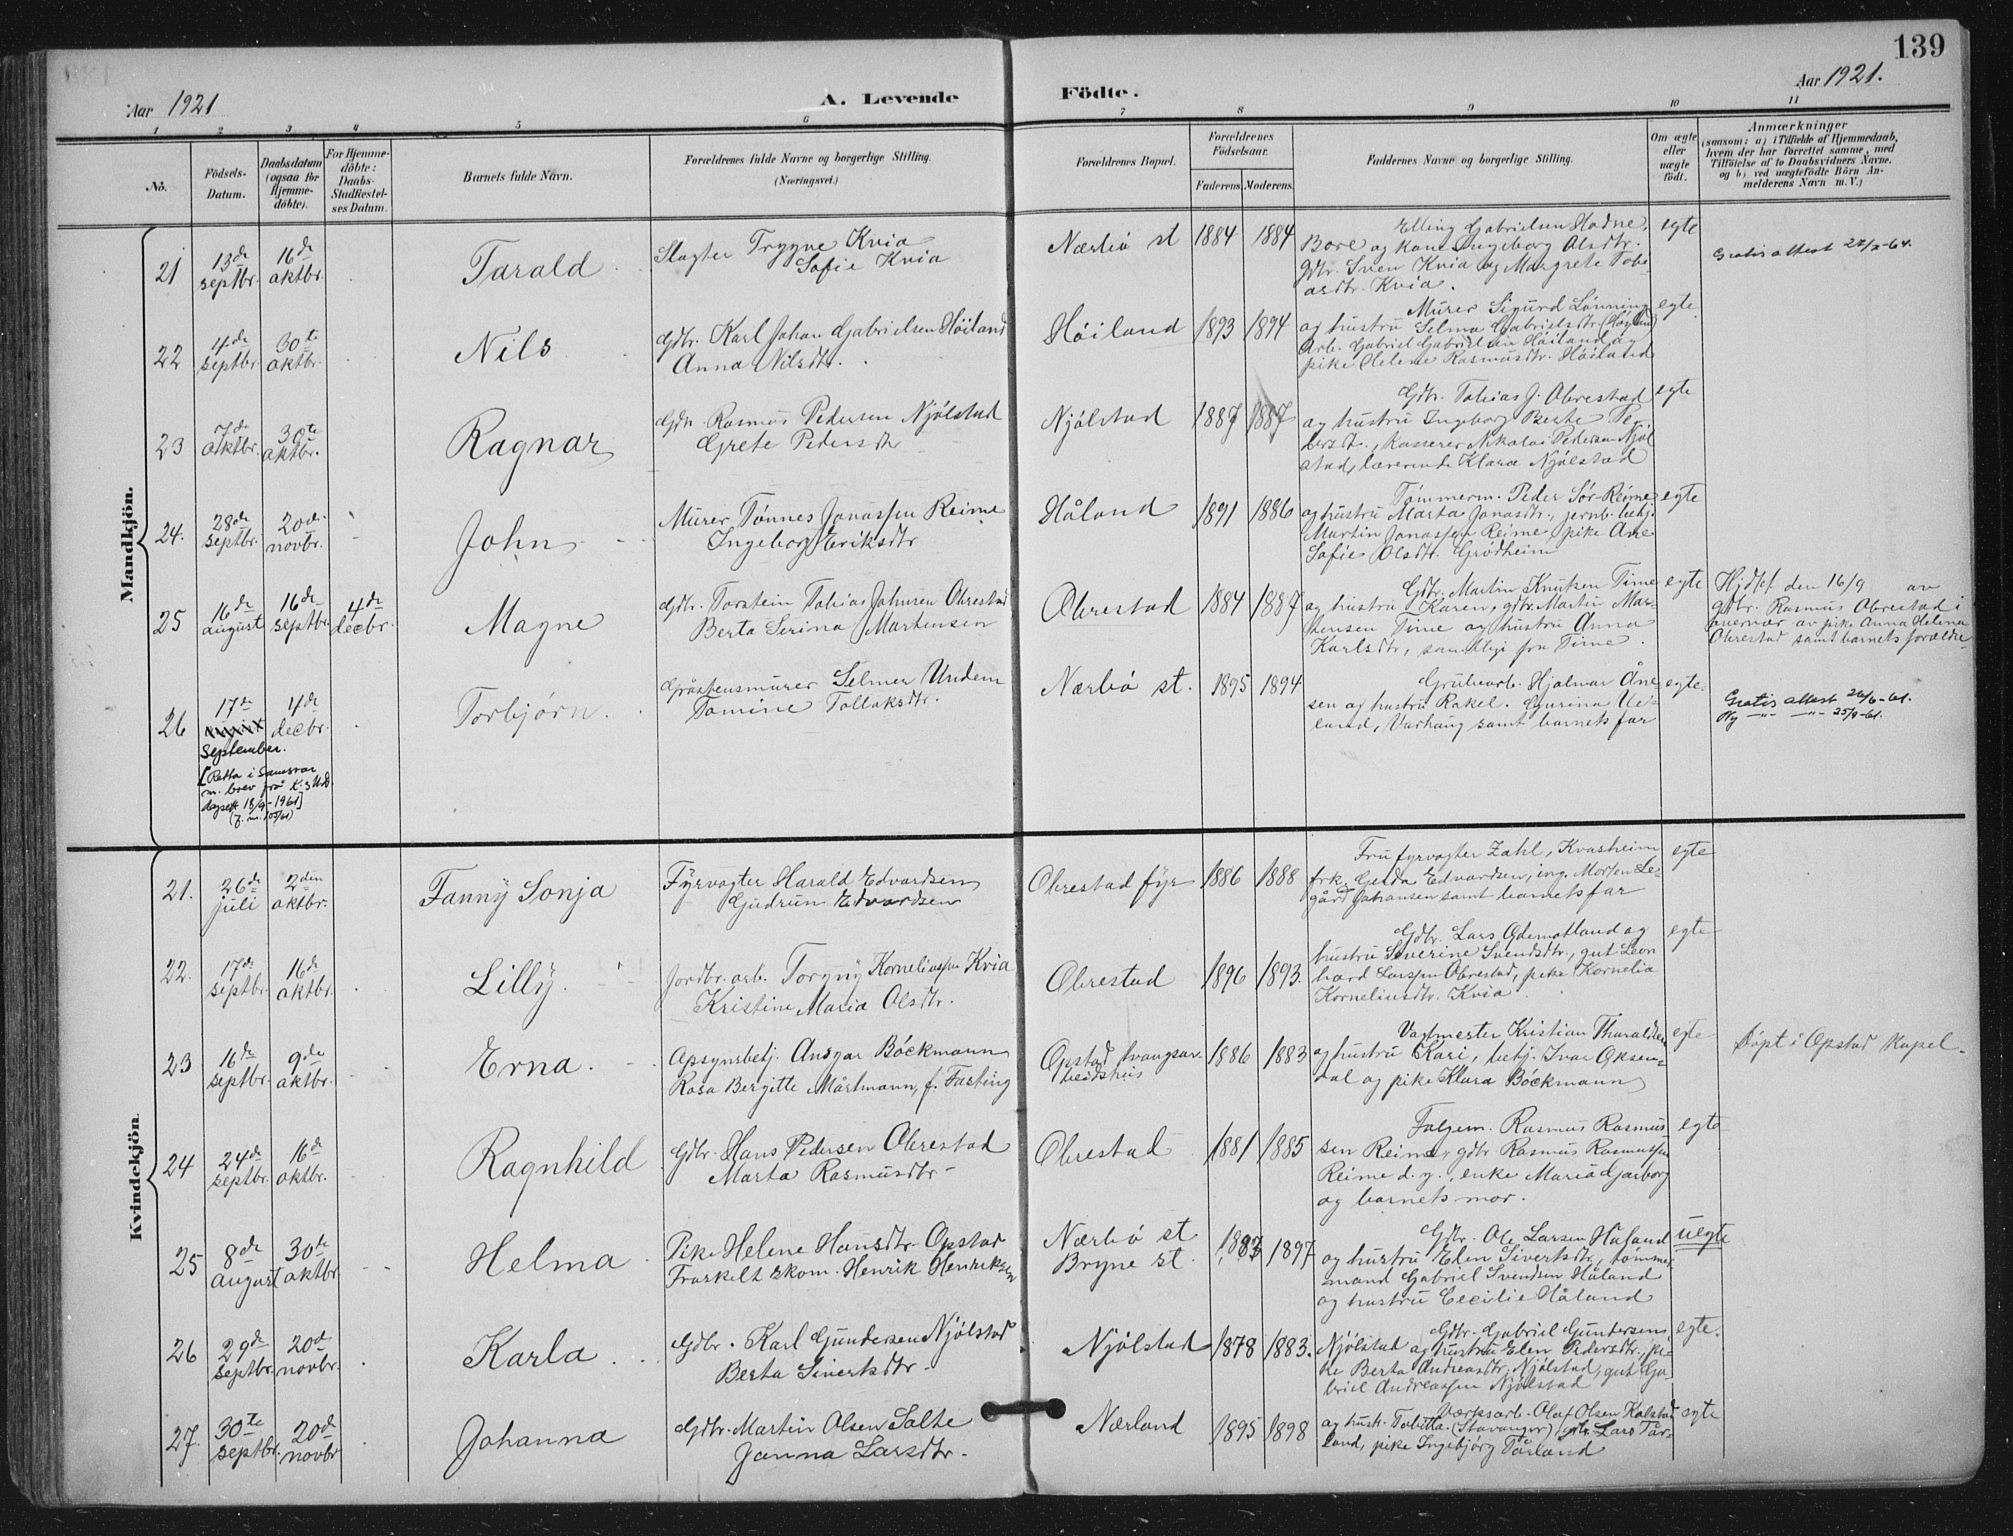 139
Aar 1921
A. Levende
Födte.
Aar 1921.
1 2 3 4 5 6 7 8 9 10 11
No.
Födsels-
Datum.
Daabsdatum
(ogsaa for
Hjemme-
döbte).
For Hjemme-
döbte:
Daabs-
Stadfæstel-
ses Datum.
Barnets fulde Navn.
Forældrenes fulde Navne og borgerlige Stilling.
(Næringsvei.)
Forældrenes Bopæl.
Forældrenes
Födselsaar.
Faderens. Moderens.
Faddernes Navne og borgerlige Stilling.
Om ægte
eller
uægte
födt.
Anmærkninger
(saasom: a) i Tilfælde af Hjemmedaab,
hvem der har forrettet samme, med
Tilföielse af to Daabsvidners Navne,
og b) ved uægtefödte Börn An-
melderens Navn m. V.)
Mandkjön.
21
13de
septbr.
16de
oktbr.
Tarald
Slagter Trygve Kvia
Sofie Kvia
Nærbö st
1884 1884
Elling Gabrielsen Hadne,
Bore og kone Ingeborg Olsdtr.
Gdbr. Sven Kvia og Margrete Tobi-
asdtr. Kvia.
egte
Gratis attest
22
4de
septbr.
30te
oktbr.
Nils
Gdbr. Karl Johan Gabrielsen Höiland
Anna Nilsdtr.
Höiland
1893 1894
Murer Sigurd Lönning
og hustru Selma Gabrielsdtr.
Arb. Gabriel Gabrielsen Höiland og
pike Helene Rasmusdtr. Höiland
egte.
23
7de
oktbr.
30te
oktbr.
Ragnar
Gdbr. Rasmus Pedersen Njölstad
Grete Pedersdtr
Njölstad
1887 1887
Gdbr. Tobias J. Obrestad
og hustru Ingeborg Berthe
Kasserer Nikolai Pedersen Njöl
stad, lærerinde Klara Njölstad
egte
24.
28de
septbr.
20de
novbr.
John
Murer Tönnes Jonassen Reime
Ingeborg Eriksdtr
Håland
1891 1886
Tömmerm. Peder Sör-Reime
og hustru Marta Jonasdtr., jernb. betj.
Martin Jonassen Reime, pike Ane
Sofie Olsdtr. Grödheim
egte
25
16de
august
16de
septbr.
4de
decbr.
Magne
Gdbr. Torstein Tobias Johnsen Obrestad
Berta Serina Martensen
Obrestad
1884 1887
Gdbr. Martin Knutsen Time
og hustru Karen, gdbr. Martin Mar-
tensen Time og hustru Anna
Karlsdtr, samtlige fra Time.
egte
Hjdpt den 16/9 av
gdbr. Rasmus Obrestad i
nærvær av pike Anna Helena
Obrestad samt barnets forældre
26
17de
September.
[Retta i Samsvar
m. brev frå
dagsett 18/9-1961]
4de
decbr.
Torbjörn.
Gråstensmurer Selmer Undem
Tomine Tollaksdtr.
Nærbö st.
1895 1894
Grubearb. Hjalmar Åne-
sen og hustru Rakel. Gurina Ue-
land, Varhaug samt barnets far
egte.
Gratis attest 26/6-61.
Ny -"- -"- 25/9-61.
Kvindekjön
21.
26de
juli
2den
oktbr.
Fanny Sonja
Fyrvogter Harald Edvardsen
Gudrun Edvardsen
Obrestad fyr
1886 1888
Fru fyrvogter Zahl, Kvasheim
frk. Gerda Edvardsen, ing. Morten Le-
gård Johansen samt barnets far
egte
22.
17de
septbr.
16de
oktbr.
Lilly.
Jordbr. arb. Torgny Korneliussen Kvia
Kristine Maria Olsdtr.
Obrestad
1896 1893.
Gdbr. Lars Ødemotland og
hustru Severine Svendsdtr., gut Leon
hard Larssen Obrestad, pike Kornelia
Korneliusdtr. Kvia.
egte
23
16de
septbr.
9de
oktbr.
Erna.
Opsynsbetj. Ansgar Böckmann
Rosa Bergitte Mårtmann, f. Fasting
Opstad tvangsar-
beidshus
1886 1883
Vagtmester Kristian Tharaldsen
og hustru Kari, betj. Ivar Oksen-
dal og pike Klara Böckmann
egte
Döpt i Opstad Kapel.
24
24de
septbr.
16de
oktbr.
Ragnhild
Gdbr. Hans Pedersen Obrestad
Marta Rasmusdtr
Obrestad
1881 1885
Folgem. Rasmus Rasmus
sen Reime, gdbr Rasmus Rasmussen
Reime d. y., enke Maria Garborg
og barnets mor.
egte
25
8de
august
30te
oktbr
Helma
Pike Helene Hansdtr Opstad
Fraskelt ekom. Henrik Henriksen
Nærbö st
Bryne st.
1883 1897
Gdbr. Ole Larsen Håland
og hustru Elen Sivertsdtr., tömmer
mand Gabriel Svendsen Håland
og hustru Cecilie Håland
uegte
26
29de
septbr.
20de
novbr.
Karla
Gdbr. Karl Gundersen Njölstad
Berta Sivertsdtr
Njölstad
1878 1883.
Gdbr. Gabriel Guntersens
Njölstad og hustru Elen Pedersdtr., pi-
ke Berta Andreasdtr. Njölstad, gut Ga-
briel Andreassen Njölstad
egte.
27.
30te
septbr.
20de
novbr
Johanna
Gdbr. Martin Olsen Salte
Janna Larsdtr.
Nærland
1895 1898
Værksarb. Olaf Olsen Kalstad
og hustr. Tabitta (Stavanger) gdbr. Lars Tår-
land, pike Ingebjörg Tårland
egte